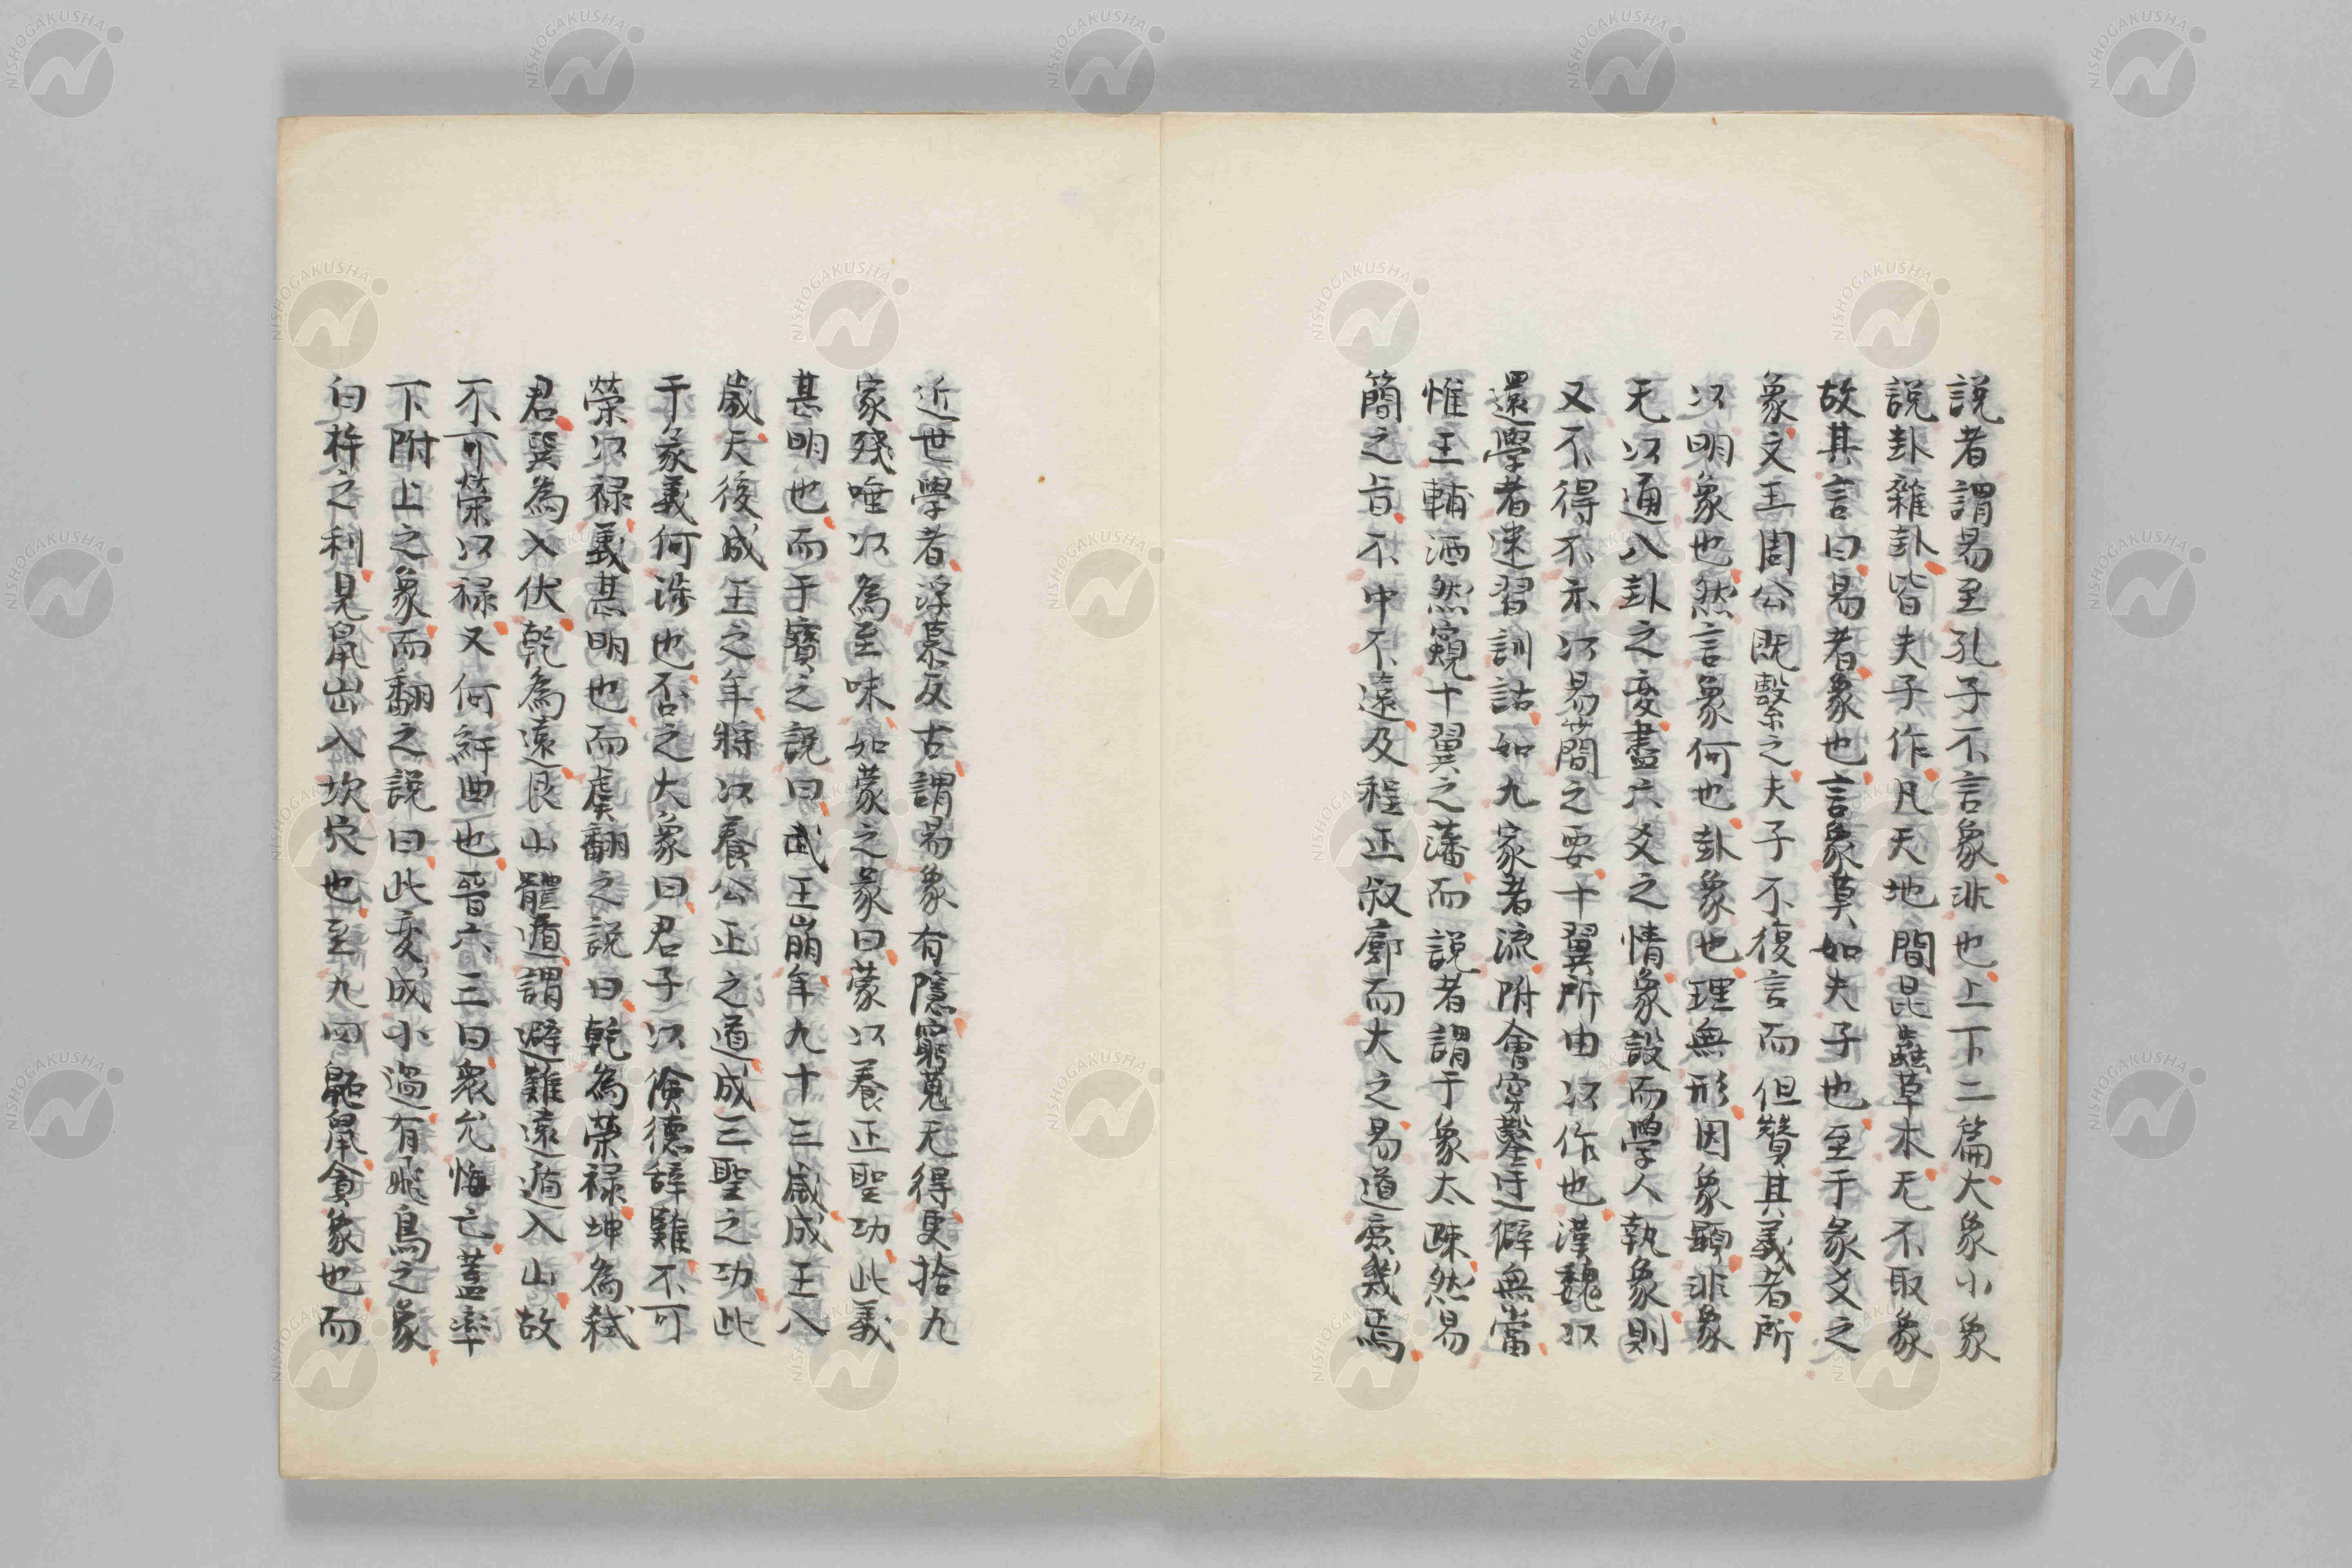 說者謂易至孔子不言象非也上下二篇大象小象
說卦雜卦皆夫子作凡天地間昆蟲草木无不取象
故其言曰易者象也言象莫如夫子也至于彖爻之
象文王周公既繫之夫子不復言而但贊其義者所
以明象也然言象何也卦象也理無形因象顯非象
无以通八卦之变盡六爻之情象設而學人執象則
又不得不示以易蕳之要十翼所由以作也漢魏以
還學者迷習訓詁如九家者流附會穿鑿迂僻無當
惟王輔洒然窺十翼之藩而說者謂于象太踈然易
簡之旨不中不遠及程正叔廓而大之易道庶幾焉
近世學者浮慕反古謂易象有隱窮蒐无得更拾九
家殘唾以為至味如蒙之彖曰蒙以養正聖功此義
甚明也而于寶之說曰武王崩年九十三歲成王八
歲天後成王之年將以養公正之道成三聖之功此
于彖義何涉也否之大象曰君子以儉德辟難不可
榮以祿義甚明也而虞翻之說曰乾為榮祿坤為弒
君巽為入伏乾為遠艮山體遁謂避難遠遁入山故
不可榮以祿又何紆曲也晉六三曰衆允悔亡蓋率
下附上之象而翻之說曰此变成小過有飛鳥之象
臼杵之利見鼠出入坎穴也至九四鼫鼠貪象也而
NISHOGAKUSHA